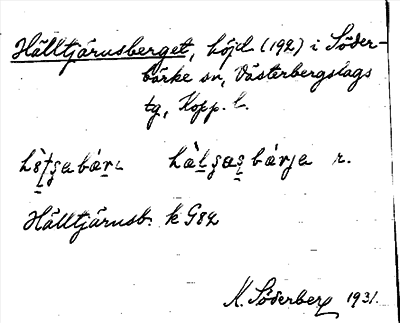 Hälltjärusberget, höjd (192) i Söder-
bärke sn, Västerbergslags
tg, Kopp. l.
hæ̀ḷʂas̩bárja r.
Hälltjärusb. k G82
K. Söderberg 1931.